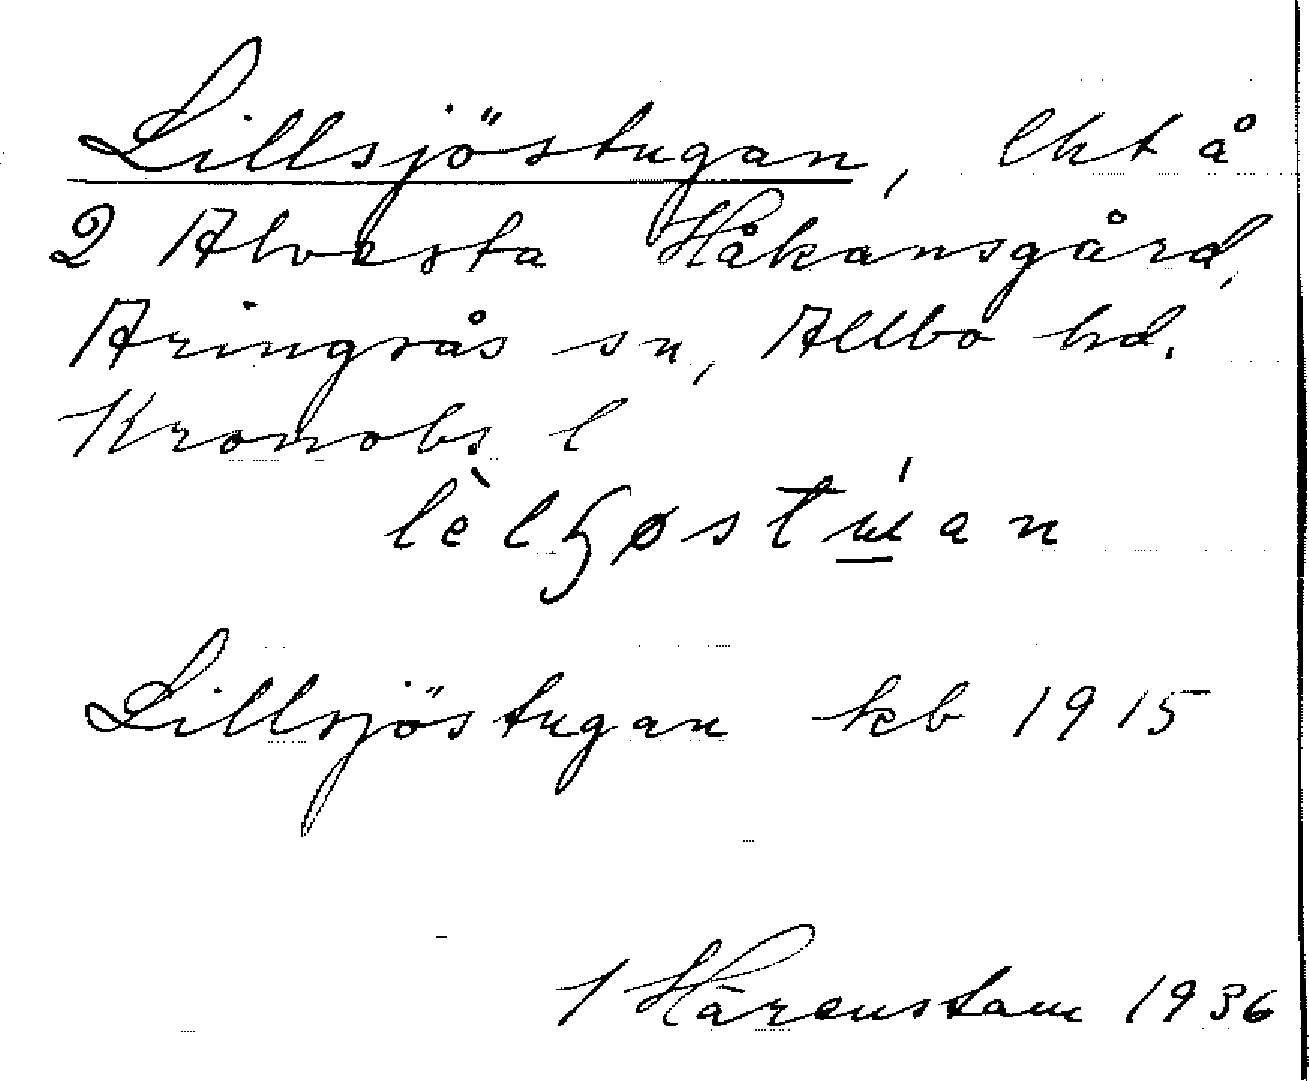 Lillsjöstugan, lht å
2 Alvesta Håkansgård,
Aringsås sn, Allbo hd.
Kronobs l
Lillsjöstugan kb 1915
1 Härenstam 1936